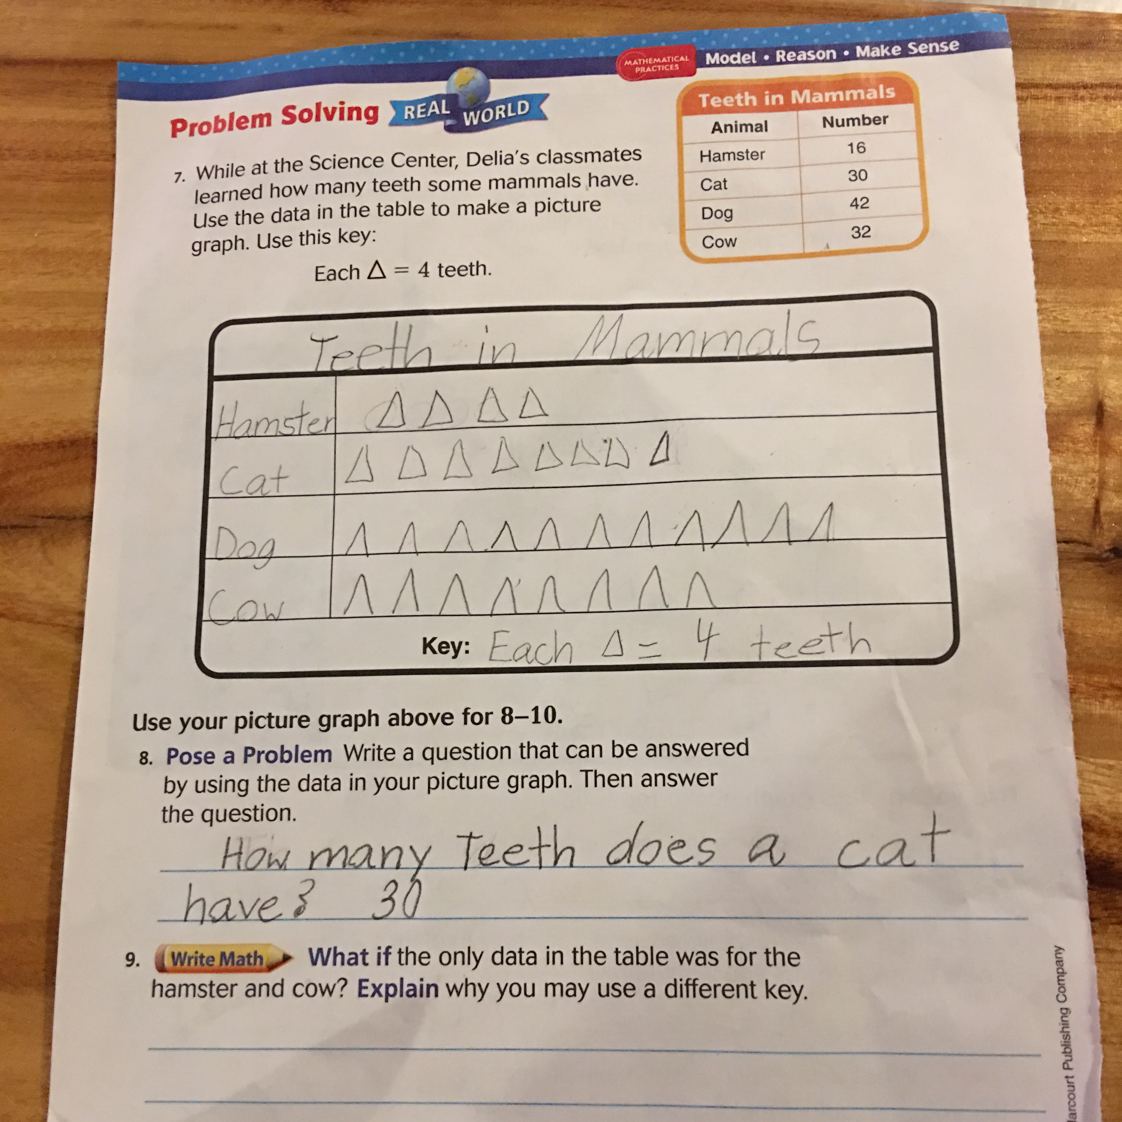 MATHEMATICAL
PRACTICES
Model • Reason • Make Sense
Problem Solving REAL WORLD
7. While at the Science Center, Delia's classmates
learned how many teeth some mammals have.
Use the data in the table to make a picture
graph. Use this key:
Each Δ = 4 teeth.
Teeth in Mammals
Animal Number
Hamster 16
Cat 30
Dog 42
Cow 32
Teeth in Mammals
Hamster
Cat
Dog
Cow
Key: Each Δ = 4 teeth
Use your picture graph above for 8–10.
8. Pose a Problem Write a question that can be answered
by using the data in your picture graph. Then answer
the question.
How many Teeth does a cat
have? 30
9. Write Math What if the only data in the table was for the
hamster and cow? Explain why you may use a different key.
Publishing Company